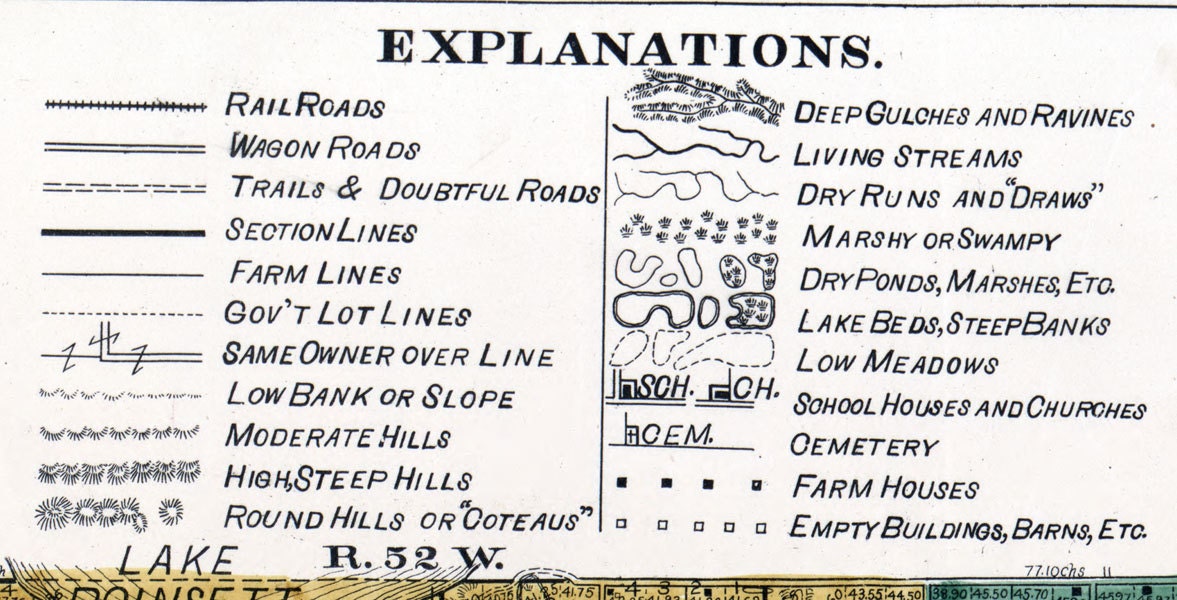 EXPLANATIONS.
RAILROADS
WAGON ROADS
TRAILS & DOUBTFUL ROADS
SECTION LINES
FARM LINES
GOV'T LOT LINES
SAME OWNER OVER LINE
LOW BANK OR SLOPE
MODERATE HILLS
HIGH, STEEP HILLS
ROUND HILLS OR "COTEAUS"
DEEP GULCHES AND RAVINES
LIVING STREAMS
DRY RUNS AND "DRAWS"
MARSHY OR SWAMPY
DRY PONDS, MARSHES, ETC.
LAKE BEDS, STEEP BANKS
LOW MEADOWS
SCH. CH. SCHOOL HOUSES AND CHURCHES
CEM. CEMETERY
FARM HOUSES
EMPTY BUILDINGS, BARNS, ETC.
LAKE R. 52 W.
77.10chs 11
POINSETT 41.75 4 3 2 1 43.55 44.50 38.90 45.50 45.70 45.97